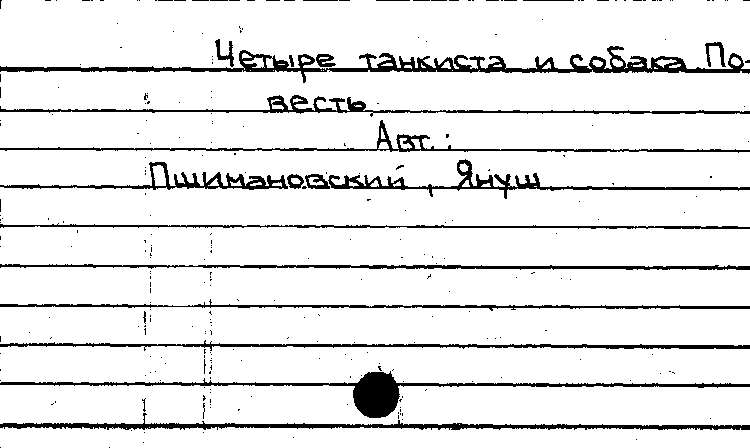 Четыре танкиста и собака По-
весть.
Авт.:
Пшимановский, Януш